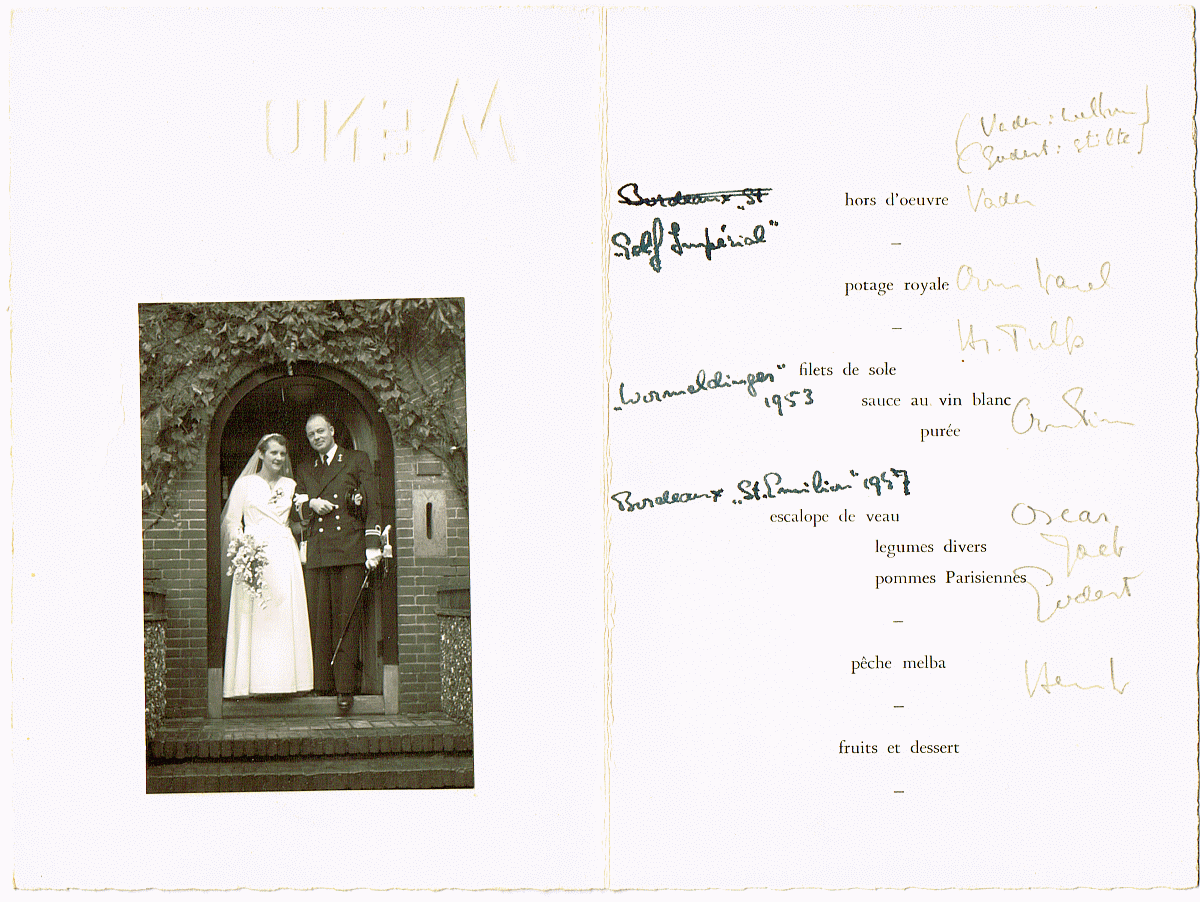 MENU
(Vader: welkom)
(Godert: stilte)
Bordeaux „St
hors d'oeuvre Vader
„Golf Impérial"
–
potage royale Oom Karel
–
Hr. Tulp
„Wormeldinger" filets de sole
1953 sauce au vin blanc
purée
Bordeaux „St. Emilion" 1957
escalope de veau Oscar
legumes divers Jaap
pommes Parisiennes Godert
–
pêche melba Henk
–
fruits et dessert
–